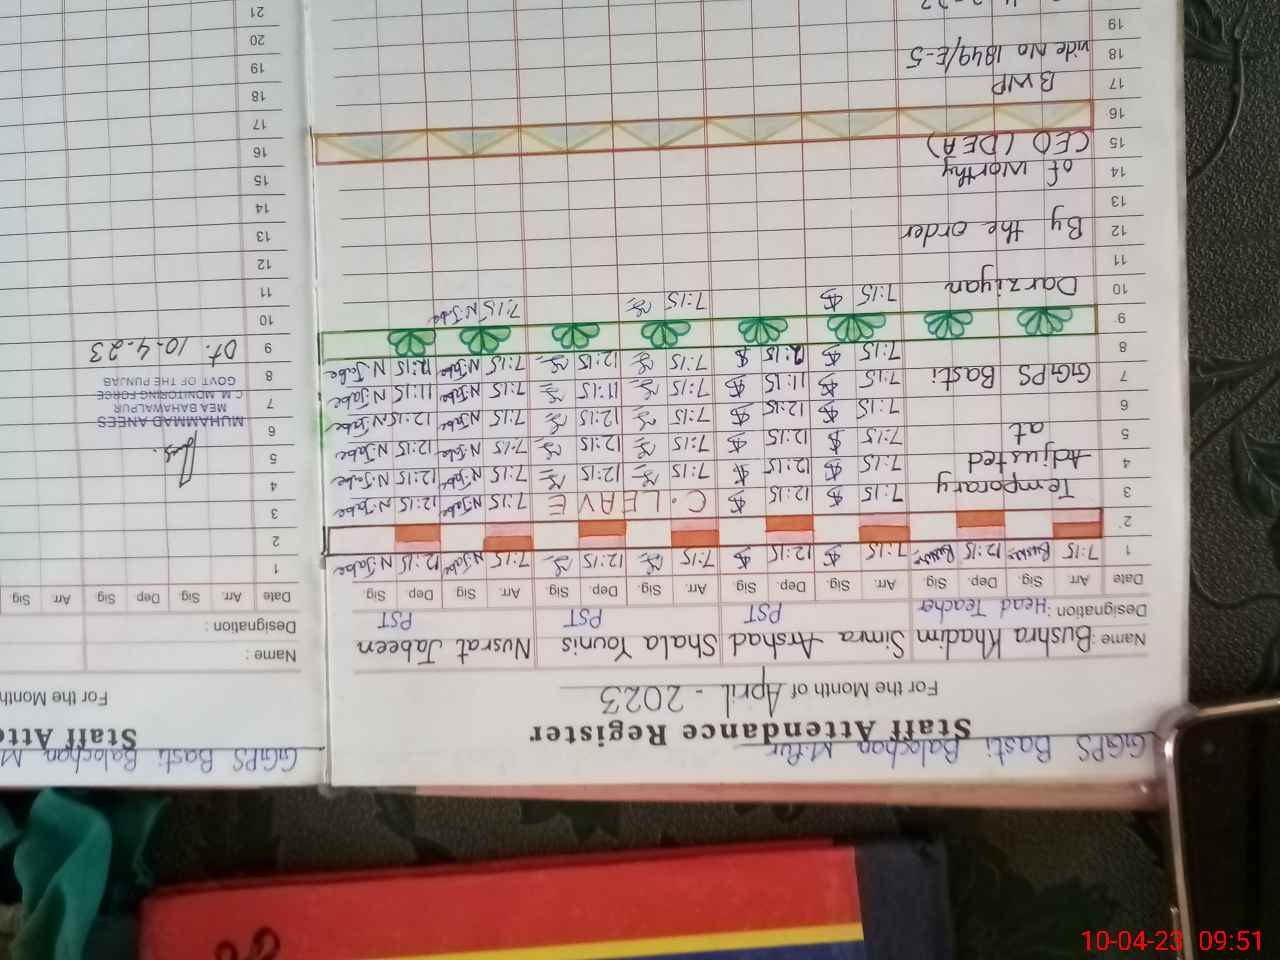 GGPS Basti Balochan M.Pur
Staff Attendance Register
For the Month of April - 2023
Name: Bushra Khadim Simra Arshad Shala Younis Nusrat Jabeen
Designation: Head Teacher PST PST PST
Date Arr. Sig. Dep. Sig. Arr. Sig. Dep. Sig. Arr. Sig. Dep. Sig. Arr. Sig. Dep. Sig.
1 7:15 12:15 7:15 12:15 7:15 12:15 7:15 N.Jabe 12:15 N.Jabe
2
3 Temporary 7:15 12:15 C.LEAVE 7:15 N.Jabe 12:15 N.Jabe
4 Adjusted 7:15 12:15 7:15 12:15 7:15 N.Jabe 12:15 N.Jabe
5 at 7:15 12:15 7:15 12:15 7:15 N.Jabe 12:15 N.Jabe
6 7:15 12:15 7:15 12:15 7:15 N.Jabe 12:15 N.Jabe
7 GGPS Basti 7:15 11:15 7:15 11:15 7:15 N.Jabe 11:15 N.Jabe
8 7:15 12:15 7:15 12:15 7:15 N.Jabe 12:15 N.Jabe
9
10 Darziyan 7:15 7:15 7:15 N.Jabe
11
12 By the order
13
14 of worthy
15 CEO (DEA)
16
17 BWP
18 vide No 1849/E-5
19
GGPS Basti Balochan M
Staff Atte
For the Month
Name :
Designation :
Date Arr. Sig. Dep Sig. Arr Sig
1
2
3
4
5
6
7
8
9
10
11
12
13
14
15
16
17
18
19
20
21
MUHAMMAD ANEES
MEA BAHAWALPUR
C.M. MONITORING FORCE
GOVT OF THE PUNJAB
Dt. 10-4-23
10-04-23 09:51